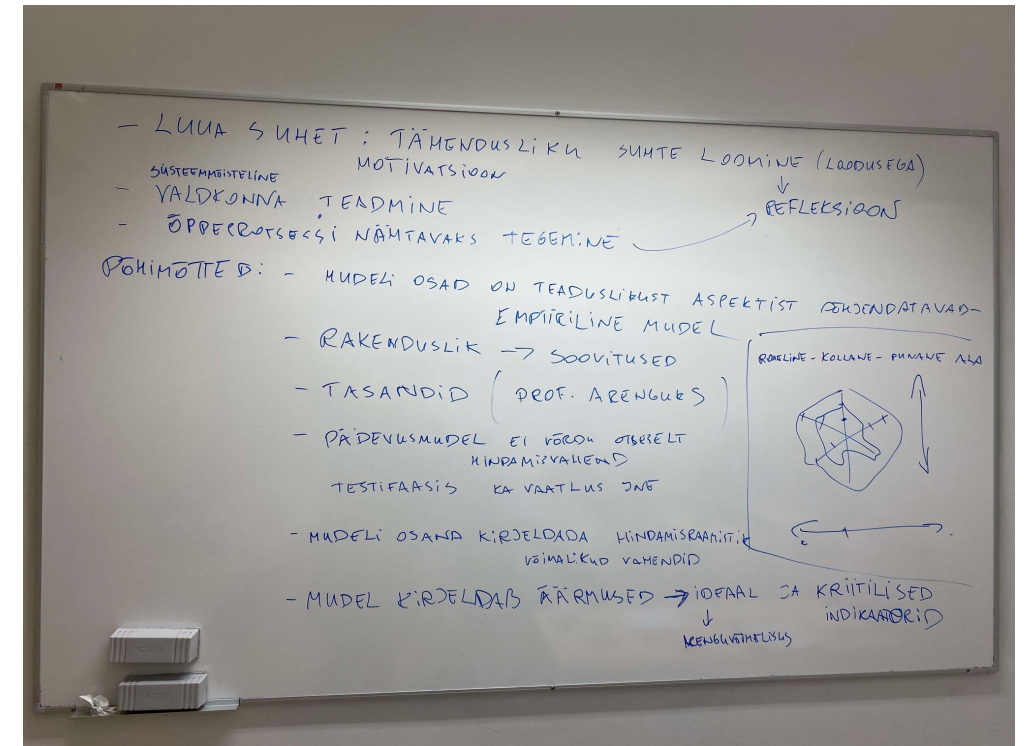 - LUUA SUHET : TÄHENDUSLIKU SUHTE LOOMINE (LOODUSEGA)
MOTIVATSIOON
↓
REFLEKSIOON
SÜSTEEMMÕISTELINE
- VALDKONNA TEADMINE
- ÕPPEPROTSESSI NÄHTAVAKS TEGEMINE
PÕHIMÕTTED: - MUDELI OSAD ON TEADUSLIKUST ASPEKTIST PÕHJENDATAVAD-
EMPIIRILINE MUDEL
- RAKENDUSLIK → SOOVITUSED
- TASANDID (PROF. ARENGUKS)
- PÄDEVUSMUDEL EI VÕRDU OTSESELT
HINDAMISVAHEND
TESTIFAASIS KA VAATLUS JNE
ROHELINE - KOLLANE - PUNANE ALA
- MUDELI OSANA KIRJELDADA HINDAMISRAAMISTIK
VÕIMALIKUD VAHENDID
- MUDEL KIRJELDAB ÄÄRMUSED → IDEAAL JA KRIITILISED
INDIKAATORID
↓
ARENGUVÕIMELISUS